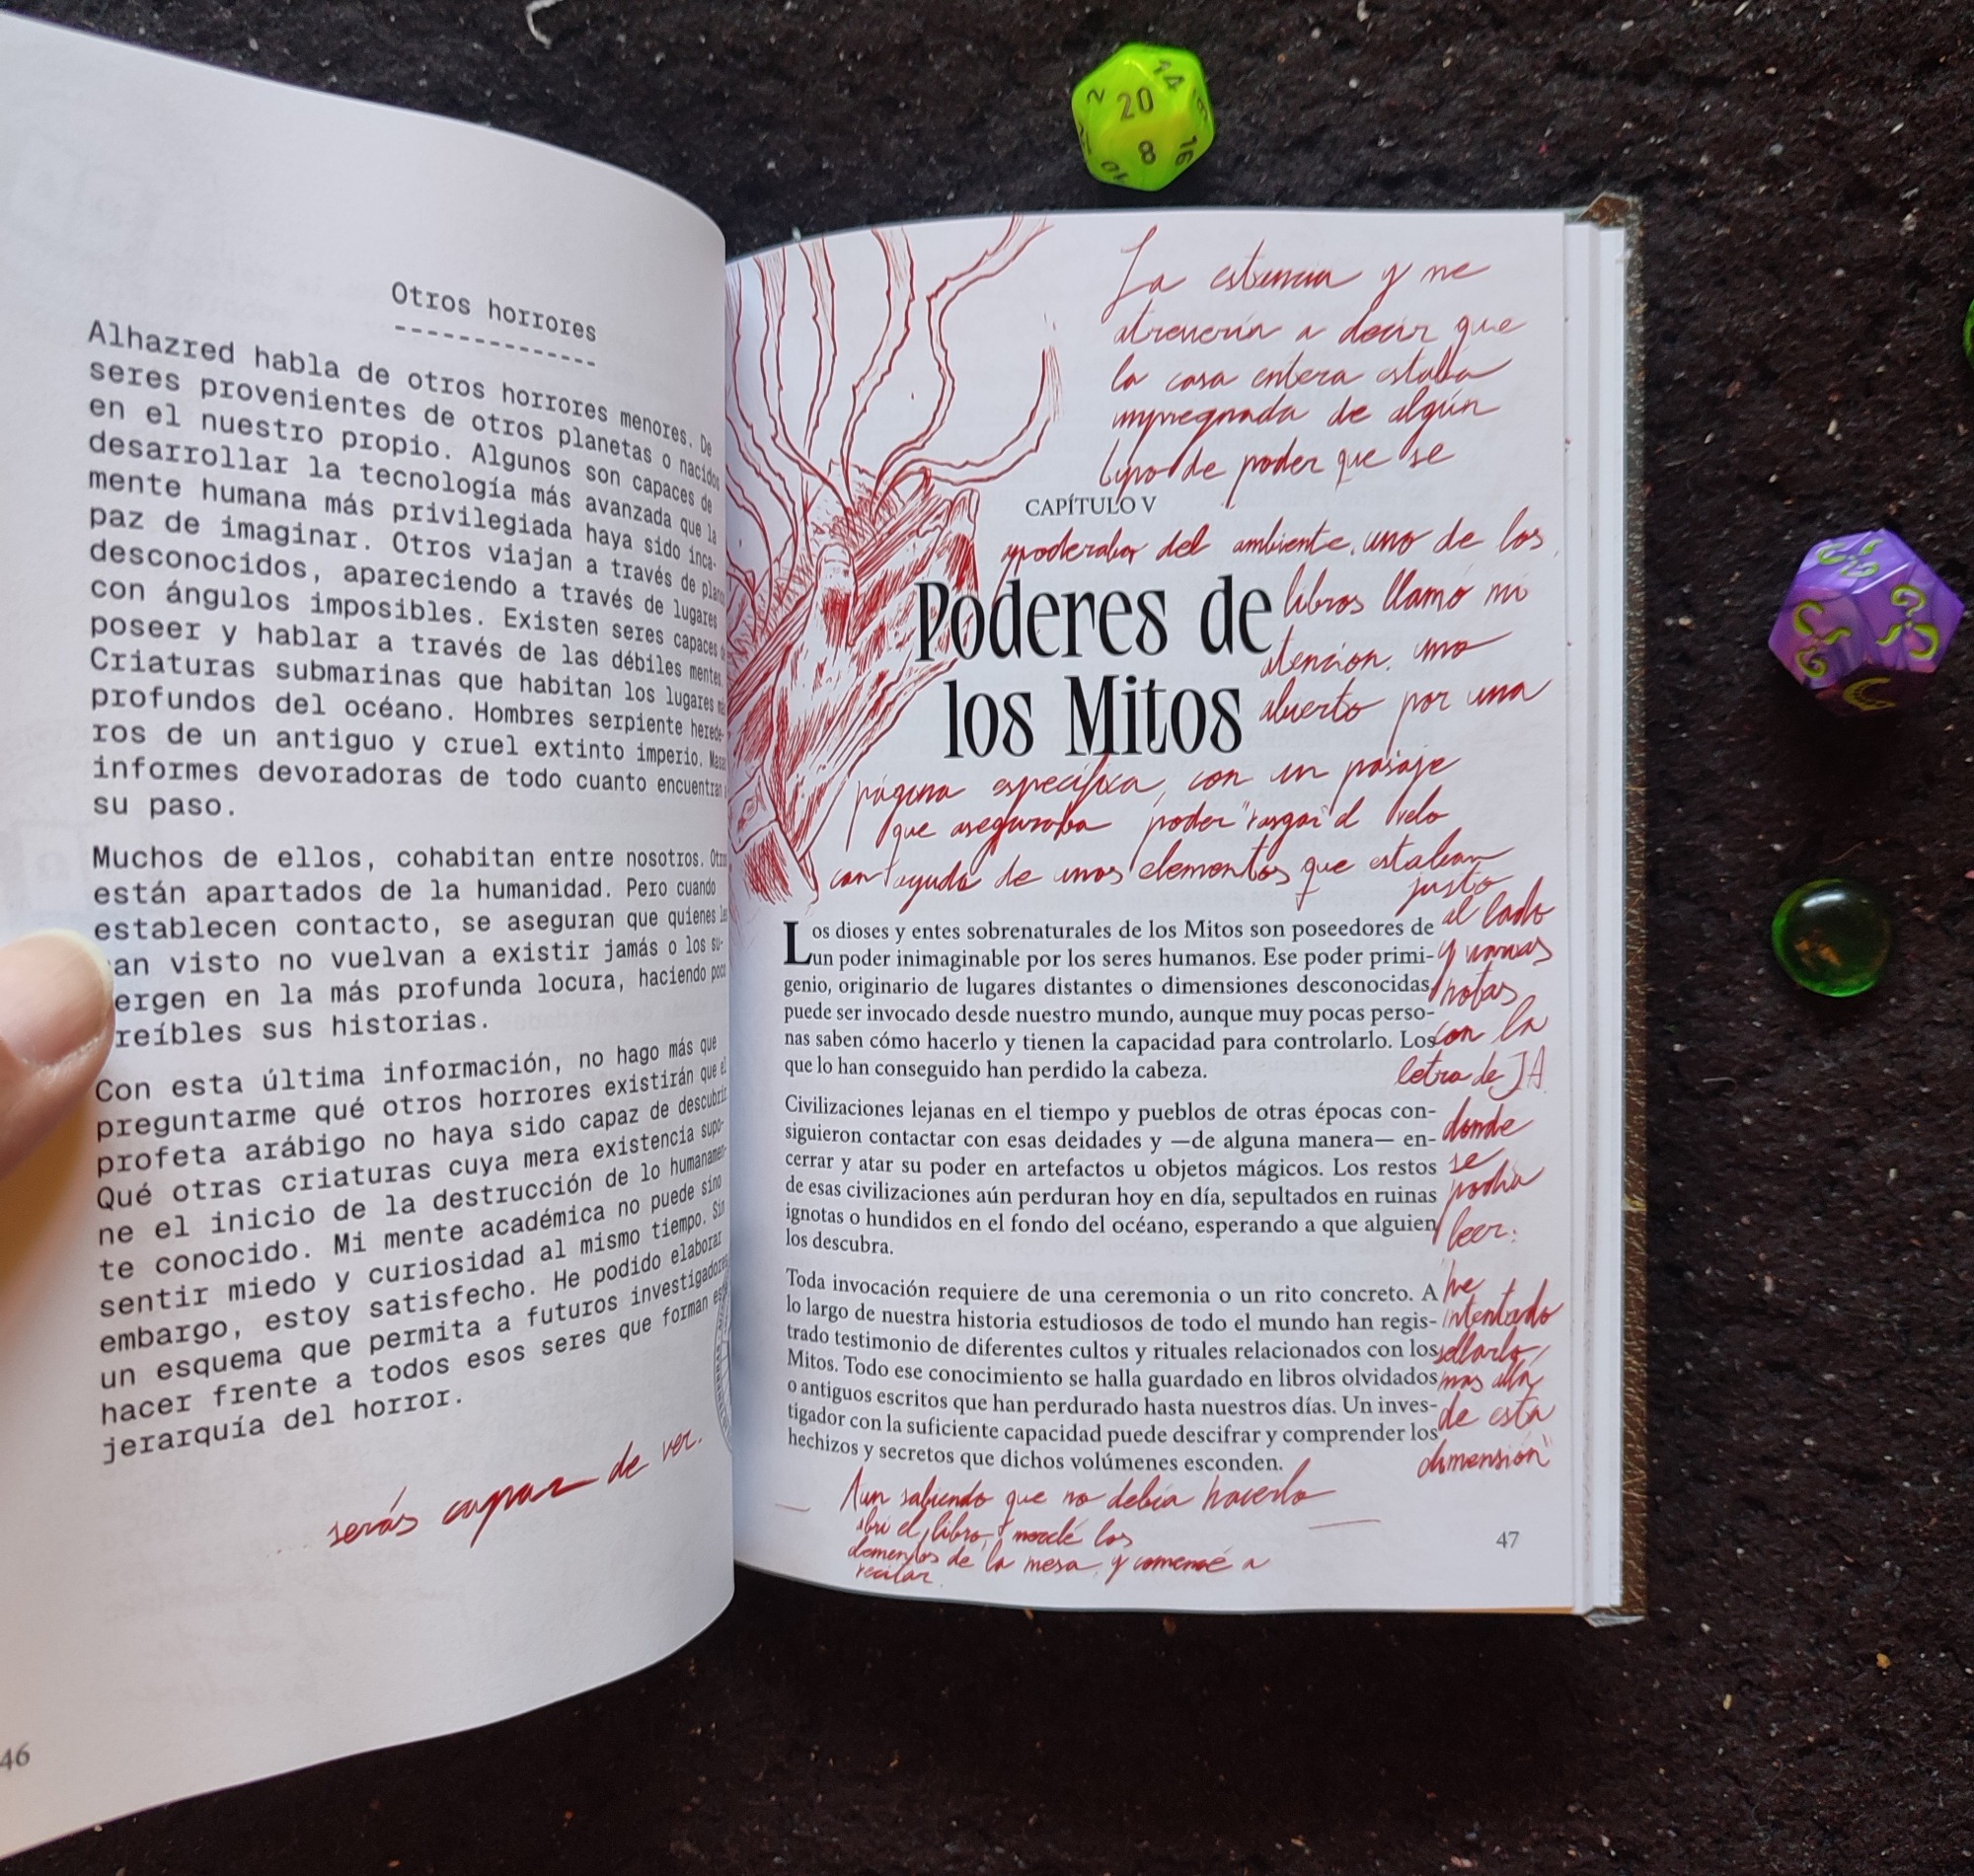 Otros horrores
Alhazred habla de otros horrores menores. De
seres provenientes de otros planetas o nacidos
en el nuestro propio. Algunos son capaces de
desarrollar la tecnología más avanzada que la
mente humana más privilegiada haya sido inca-
paz de imaginar. Otros viajan a través de planos
desconocidos, apareciendo a través de lugares
con ángulos imposibles. Existen seres capaces
poseer y hablar a través de las débiles mentes.
Criaturas submarinas que habitan los lugares
profundos del océano. Hombres serpiente herede-
ros de un antiguo y cruel extinto imperio. Masas
informes devoradoras de todo cuanto encuentran
su paso.
Muchos de ellos, cohabitan entre nosotros. Otros
están apartados de la humanidad. Pero cuando
establecen contacto, se aseguran que quienes
an visto no vuelvan a existir jamás o los su-
ergen en la más profunda locura, haciendo poco
reíbles sus historias.
Con esta última información, no hago más que
preguntarme qué otros horrores existirán que el
profeta arábigo no haya sido capaz de descubrir.
Qué otras criaturas cuya mera existencia supo-
ne el inicio de la destrucción de lo humanamen-
te conocido. Mi mente académica no puede sino
sentir miedo y curiosidad al mismo tiempo. Sin
embargo, estoy satisfecho. He podido elaborar
un esquema que permita a futuros investigadores
hacer frente a todos esos seres que forman esta
jerarquía del horror.
serás capaz de ver.
46
La estancia y me
atrevería a decir que
la casa entera estaba
impregnada de algún
tipo de poder que se
CAPÍTULO V
apoderaba del ambiente. uno de los
Poderes de
libros llamó mi
atención. uno
los Mitos
abierto por una
página específica, con un pasaje
que aseguraba poder "rasgar" el velo
con ayuda de unos elementos que estaban
justo
al lado
y varias
notas
con la
letra de JA
donde
se
podía
leer:
"he
intentado
sellarlo,
mas allá
de esta
dimensión"
Los dioses y entes sobrenaturales de los Mitos son poseedores de
un poder inimaginable por los seres humanos. Ese poder primi-
genio, originario de lugares distantes o dimensiones desconocidas,
puede ser invocado desde nuestro mundo, aunque muy pocas perso-
nas saben cómo hacerlo y tienen la capacidad para controlarlo. Los
que lo han conseguido han perdido la cabeza.
Civilizaciones lejanas en el tiempo y pueblos de otras épocas con-
siguieron contactar con esas deidades y —de alguna manera— en-
cerrar y atar su poder en artefactos u objetos mágicos. Los restos
de esas civilizaciones aún perduran hoy en día, sepultados en ruinas
ignotas o hundidos en el fondo del océano, esperando a que alguien
los descubra.
Toda invocación requiere de una ceremonia o un rito concreto. A
lo largo de nuestra historia estudiosos de todo el mundo han regis-
trado testimonio de diferentes cultos y rituales relacionados con los
Mitos. Todo ese conocimiento se halla guardado en libros olvidados
o antiguos escritos que han perdurado hasta nuestros días. Un inves-
tigador con la suficiente capacidad puede descifrar y comprender los
hechizos y secretos que dichos volúmenes esconden.
Aun sabiendo que no debía hacerlo
abrí el libro, mezclé los
elementos de la mesa y comencé a
recitar.
47
20
14
2
8
16
10